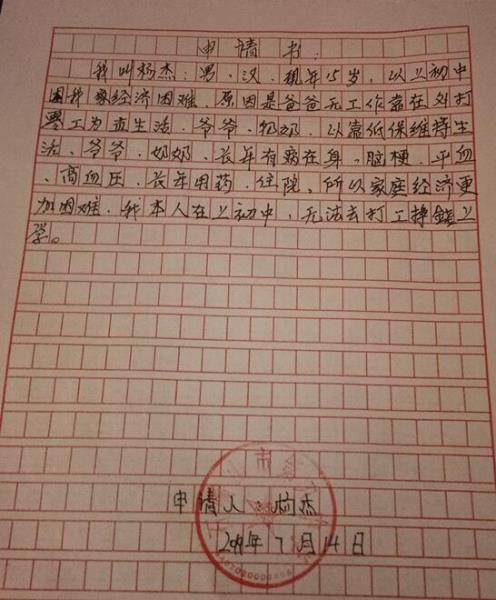 申请书:
我叫杨杰:男、汉.现年15岁,以上初中
因我家经济困难.原因是爸爸无工作靠在外打
零工为直生活.爷爷、奶奶、以靠低保维持生
活、爷爷、奶奶、长年有病在身、脑梗、平血
、高血压、长年用药、住院、所以家庭经济更
加困难.我本人在上初中,无法去打工挣钱上
学。
市
申请人:杨杰
年7月14日